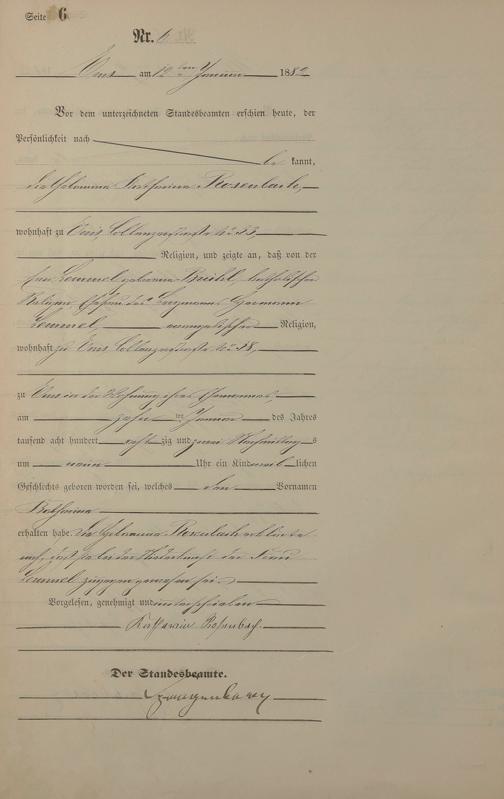 Seite 6
Nr. 6
Ems am 12ten Januar 1882
Vor dem unterzeichneten Standesbeamten erschien heute, der
Persönlichkeit nach be kannt,
die Hebamme Katharina Rosenbach,
wohnhaft zu Ems Coblenzerstraße No 53,
Religion, und zeigte an, daß von der
geborene katholischer
Religion, Ehefrau des Hermann
evangelischer Religion,
wohnhaft zu Ems Coblenzerstraße No 58,
zu Ems in der Wohnung ihres Ehemannes,
am zehn ten Januar des Jahres
tausend acht hundert acht zig und zwei Nachmittag s
um neun Uhr ein Kind weib lichen
Geschlechts geboren worden sei, welches den Vornamen
Katharina
erhalten habe. Die Hebamme Rosenbach erklärte
noch, daß sie bei der Niederkunft der Frau
zugegen gewesen sei.
Vorgelesen, genehmigt und unterschrieben
Katharina Rosenbach.
Der Standesbeamte.